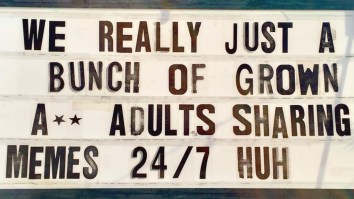 WE REALLY JUST A
BUNCH OF GROWN
A** ADULTS SHARING
MEMES 24/7 HUH